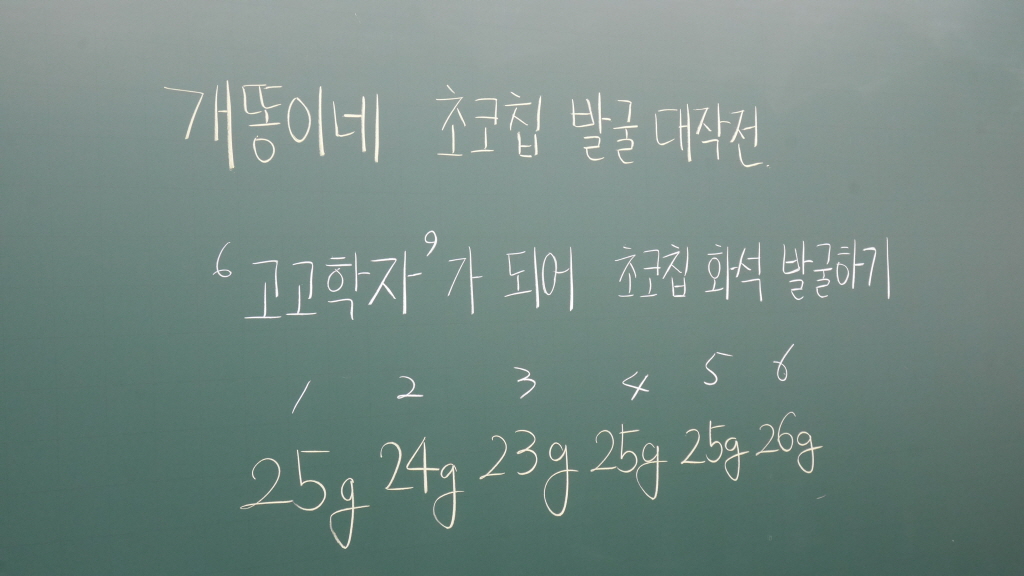 개똥이네 초코칩 발굴 대작전.
'고고학자'가 되어 초코칩 화석 발굴하기
1 2 3 4 5 6
25g 24g 23g 25g 25g 26g